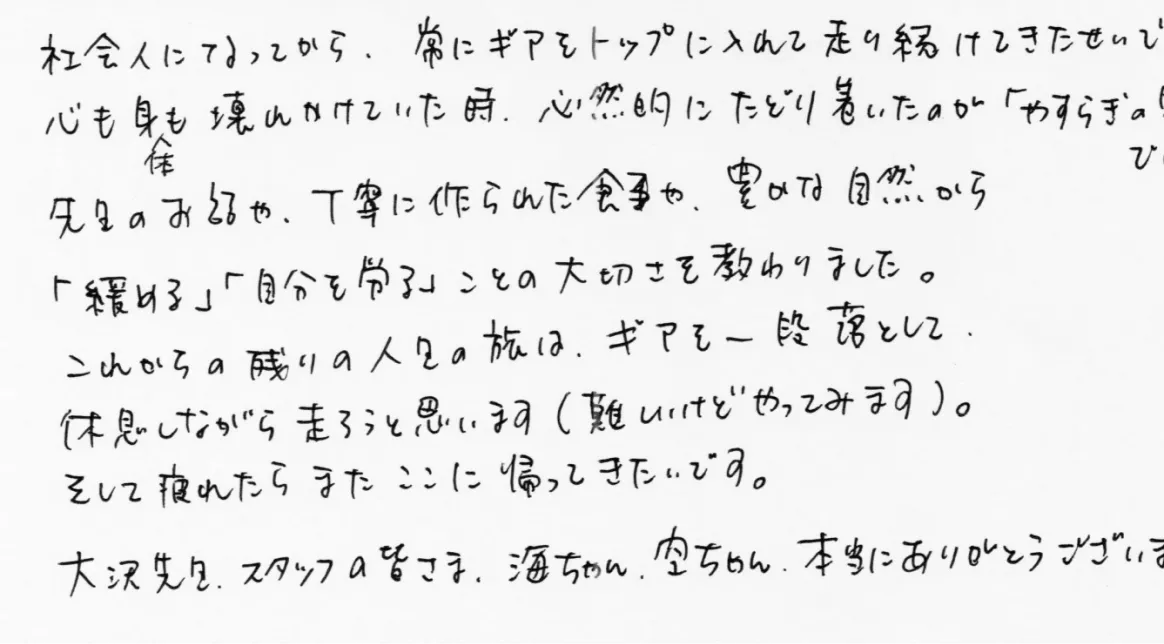 社会人になってから、常にギアをトップに入れて走り続けてきたせいで
心も身体も壊れかけていた時、必然的にたどり着いたのが「やすらぎの
び
先生のお話や、丁寧に作られた食事や、豊かな自然から
「緩める」「自分を労る」ことの大切さを教わりました。
これからの残りの人生の旅は、ギアを一段落として、
休息しながら走ろうと思います(難しいけどやってみます)。
そして疲れたらまたここに帰ってきたいです。
大沢先生、スタッフの皆さま、海ちゃん、空ちゃん、本当にありがとうございま